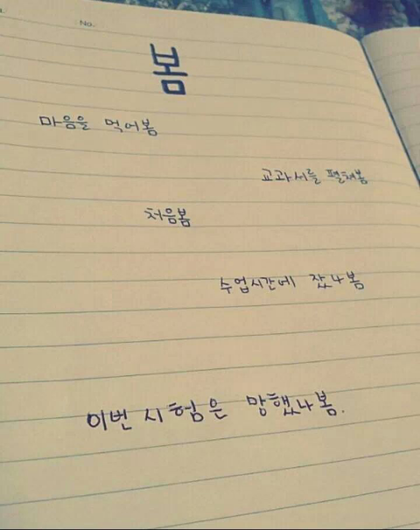 No.
봄
마음을 먹어봄
교과서를 펼쳐봄
처음봄
수업시간에 잤나봄
이번 시험은 망했나봄.